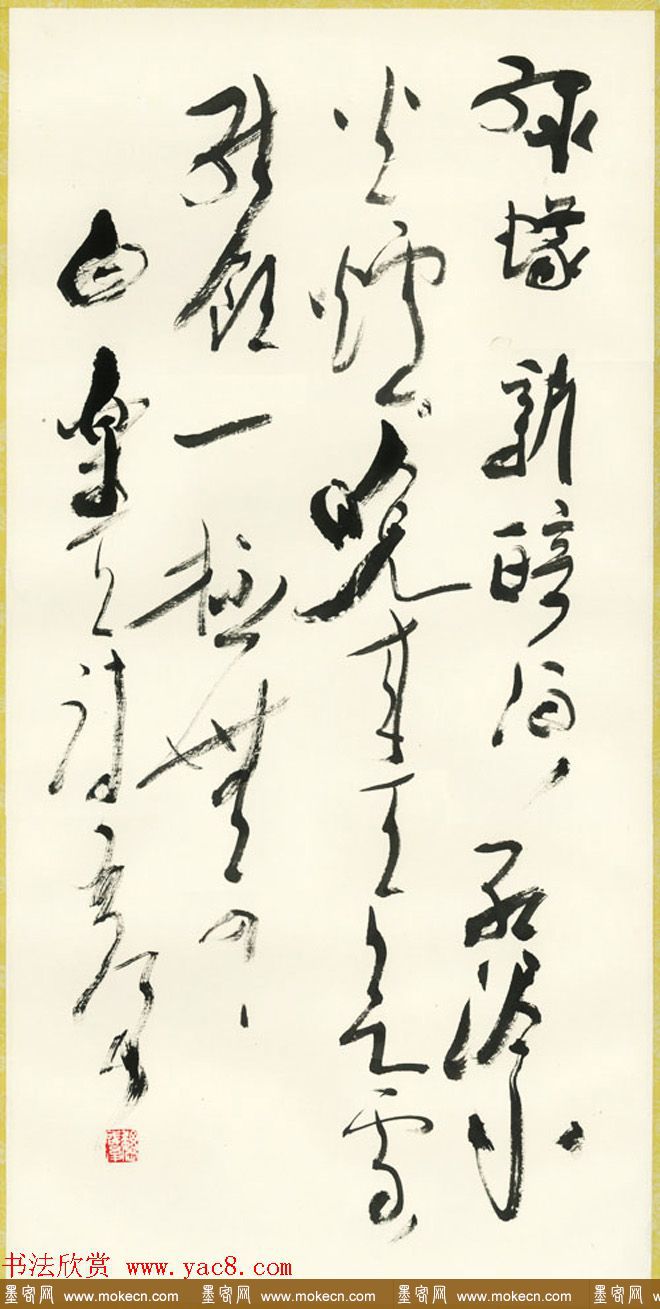 綠蟻新醅酒紅泥小
火爐晚來天欲雪
能飲一杯無
白樂天詩
书法欣赏 www.yac8.com
墨客网 www.mokecn.com 墨客网 www.mokecn.com 墨客网 www.mokecn.com 墨客网 www.mokecn.com